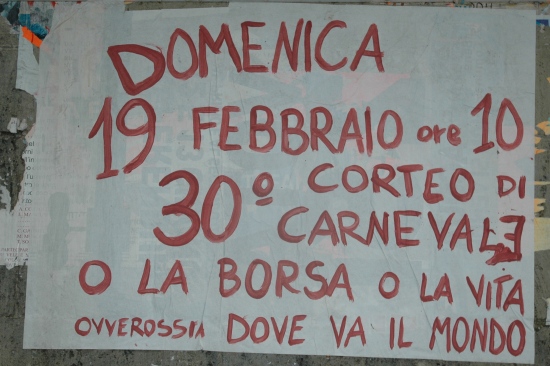 DOMENICA
19 FEBBRAIO ore 10
30º CORTEO DI
CARNEVALE
O LA BORSA O LA VITA
OVVEROSSIA DOVE VA IL MONDO